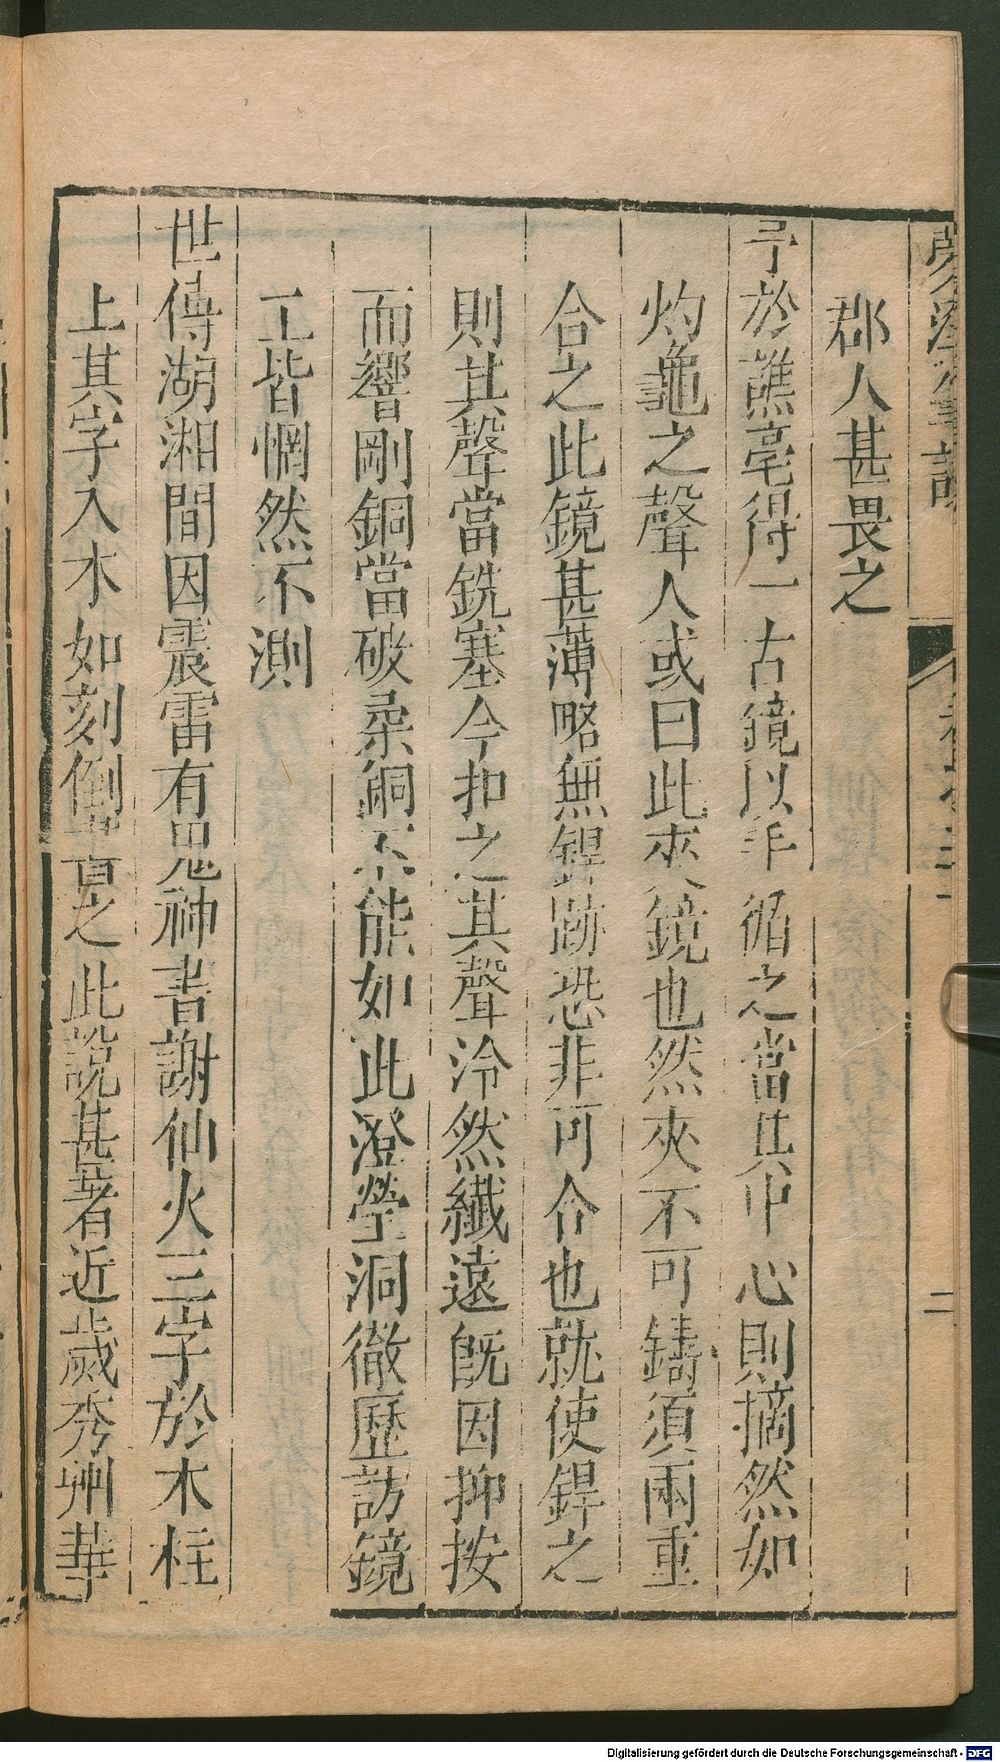 夢溪筆談
二
郡人甚畏之
予於譙亳得一古鏡以手循之當其中心則摘然如
灼龜之聲人或曰此夾鏡也然夾不可鑄須兩重
合之此鏡甚薄略無銲跡恐非可合也就使銲之
則其聲當銑塞今扣之其聲泠然纖遠既因抑按
而響剛銅當破柔銅不能如此澄瑩洞徹歷訪鏡
工皆惘然不測
世傳湖湘間因震雷有鬼神書謝仙火三字於木柱
上其字入木如刻倒書之此說甚著近歲秀州華
Digitalisierung gefördert durch die Deutsche Forschungsgemeinschaft - DFG